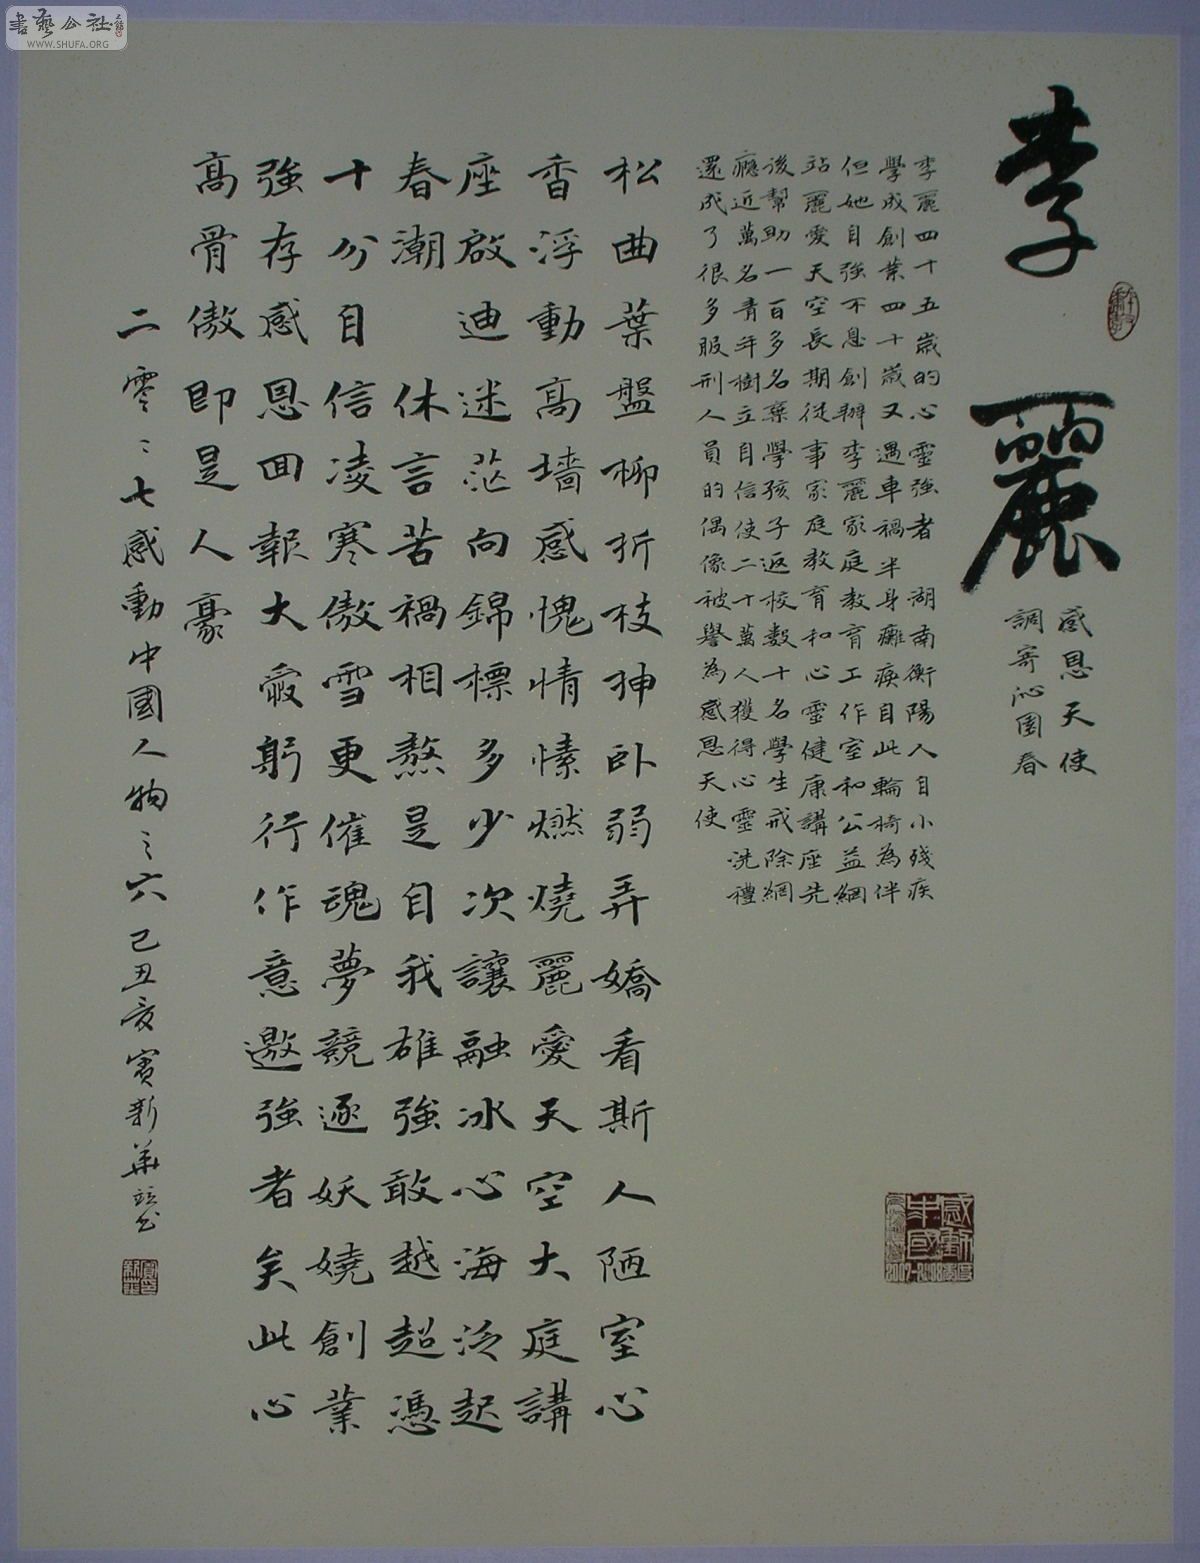 書藝公社
WWW.SHUFA.ORG
李麗
感恩天使
調寄沁園春
李麗四十五歲的心靈強者湖南衡陽人自小殘疾
學成創業四十歲又遇車禍半身癱瘓自此輪椅為伴
但她自強不息創辦李麗家庭教育工作室和公益網
站麗愛天空長期從事家庭教育和心靈健康講座先
後幫助一百多名棄學孩子返校數十名學生戒除網
癮近萬名青年樹立自信使二十萬人獲得心靈洗禮
還成了很多服刑人員的偶像被譽為感恩天使
松曲葉盤柳折枝抻臥弱弄嬌看斯人陋室心
香浮動高墙感愧情愫燃燒麗愛天空大庭講
座啟迪迷茫向錦標多少次讓融冰心海泛起
春潮 休言苦禍相熬是自我雄強敢越超憑
十分自信凌寒傲雪更催魂夢競逐妖嬈創業
強存感恩回報大愛躬行作意邀強者矣此心
高骨傲即是人豪
二零零七感動中國人物之六己丑夏賓新華並書
感動中國